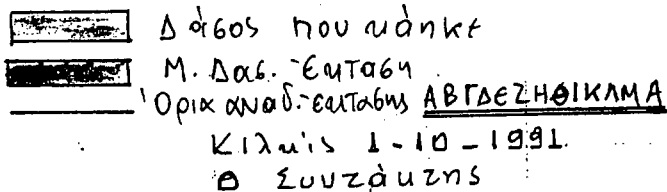 Δάσος που κάηκε
Μ. Δας. Έκταση
Όρια αναδ. έκτασης ΑΒΓΔΕΖΗΘΙΚΛΜΑ
Κιλκίς 1-10-1991
Ο Συντάκτης